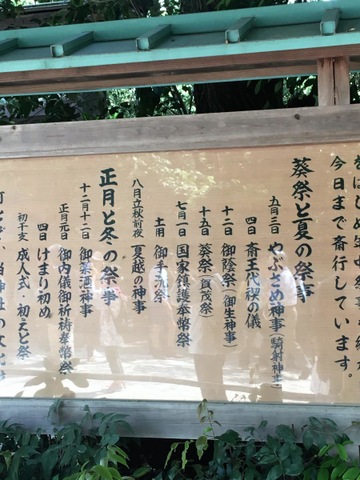 今日まで斎行しています。
葵祭と夏の祭事
五月三日 やぶさめ神事(騎射神事)
四日 斎王代禊の儀
十二日 御蔭祭(御生神事)
十五日 葵祭(賀茂祭)
七月一日 国家鎮護奉幣祭
土用 御手洗祭
八月立秋前夜 夏越の神事
正月と冬の祭事
十二月十二日 御薬酒神事
正月元日 御内儀御祈祷奉幣祭
四日 けまり初め
初干支 成人式・初えと祭